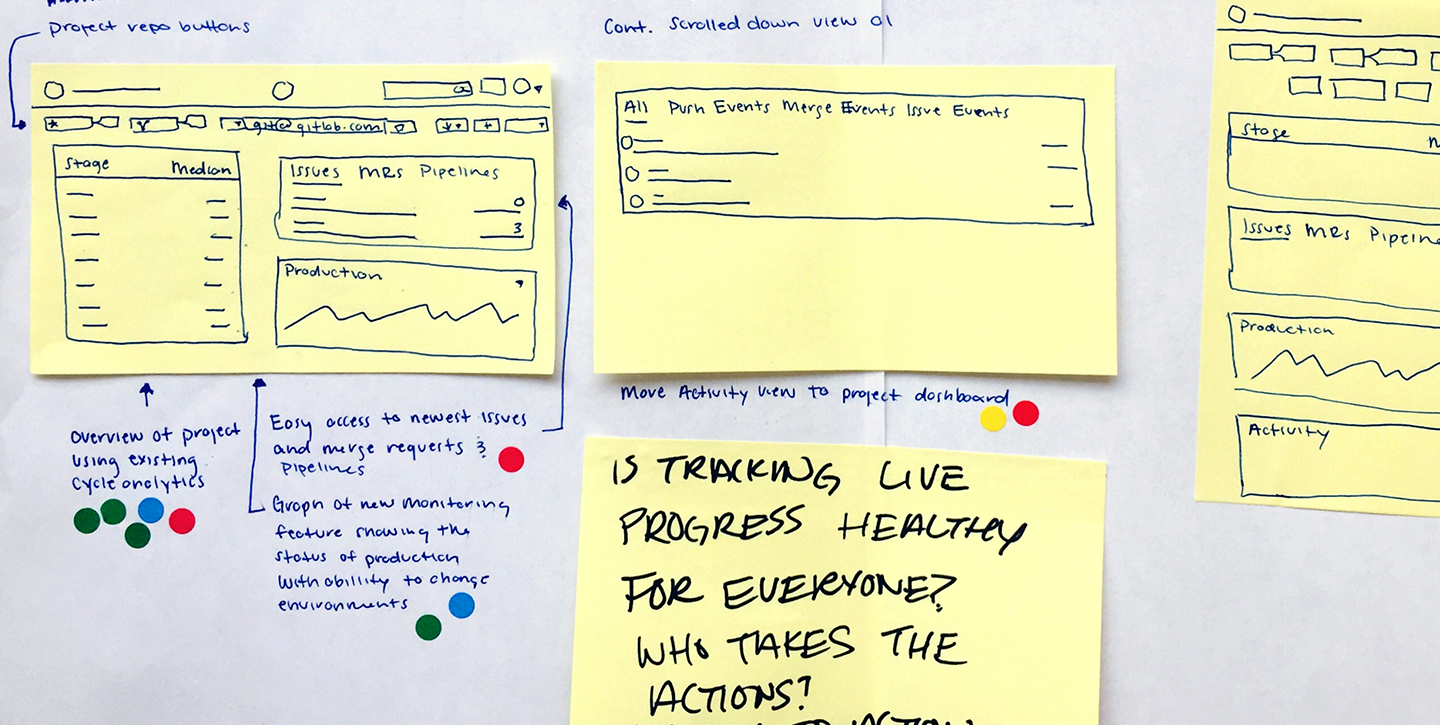 project repo buttons
git@gitlab.com
Stage Median
Issues MRs Pipelines
0
3
Production
Overview of project
using existing
cycle analytics
Easy access to newest issues
and merge requests &
pipelines
Graph of new monitoring
feature showing the
status of production
with abillity to change
environments
Cont. Scrolled down view 01
All Push Events Merge Events Issue Events
Move Activity view to project dashboard
IS TRACKING LIVE
PROGRESS HEALTHY
FOR EVERYONE?
WHO TAKES THE
ACTIONS?
Stage
Issues MRs Pipeline
Production
Activity